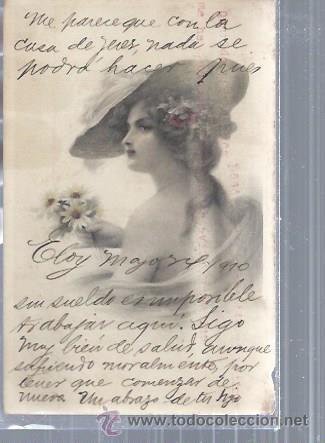 Me parece que con la
casa de Jerez, nada se
podrá hacer pues
Eloy Mayo 1910
sin sueldo es imposible
trabajar aquí. Sigo
muy bién de salud, aunque
sufriendo moralmente, por
tener que comenzar de
nuevo. Un abrazo de tu hijo
todocoleccion.net